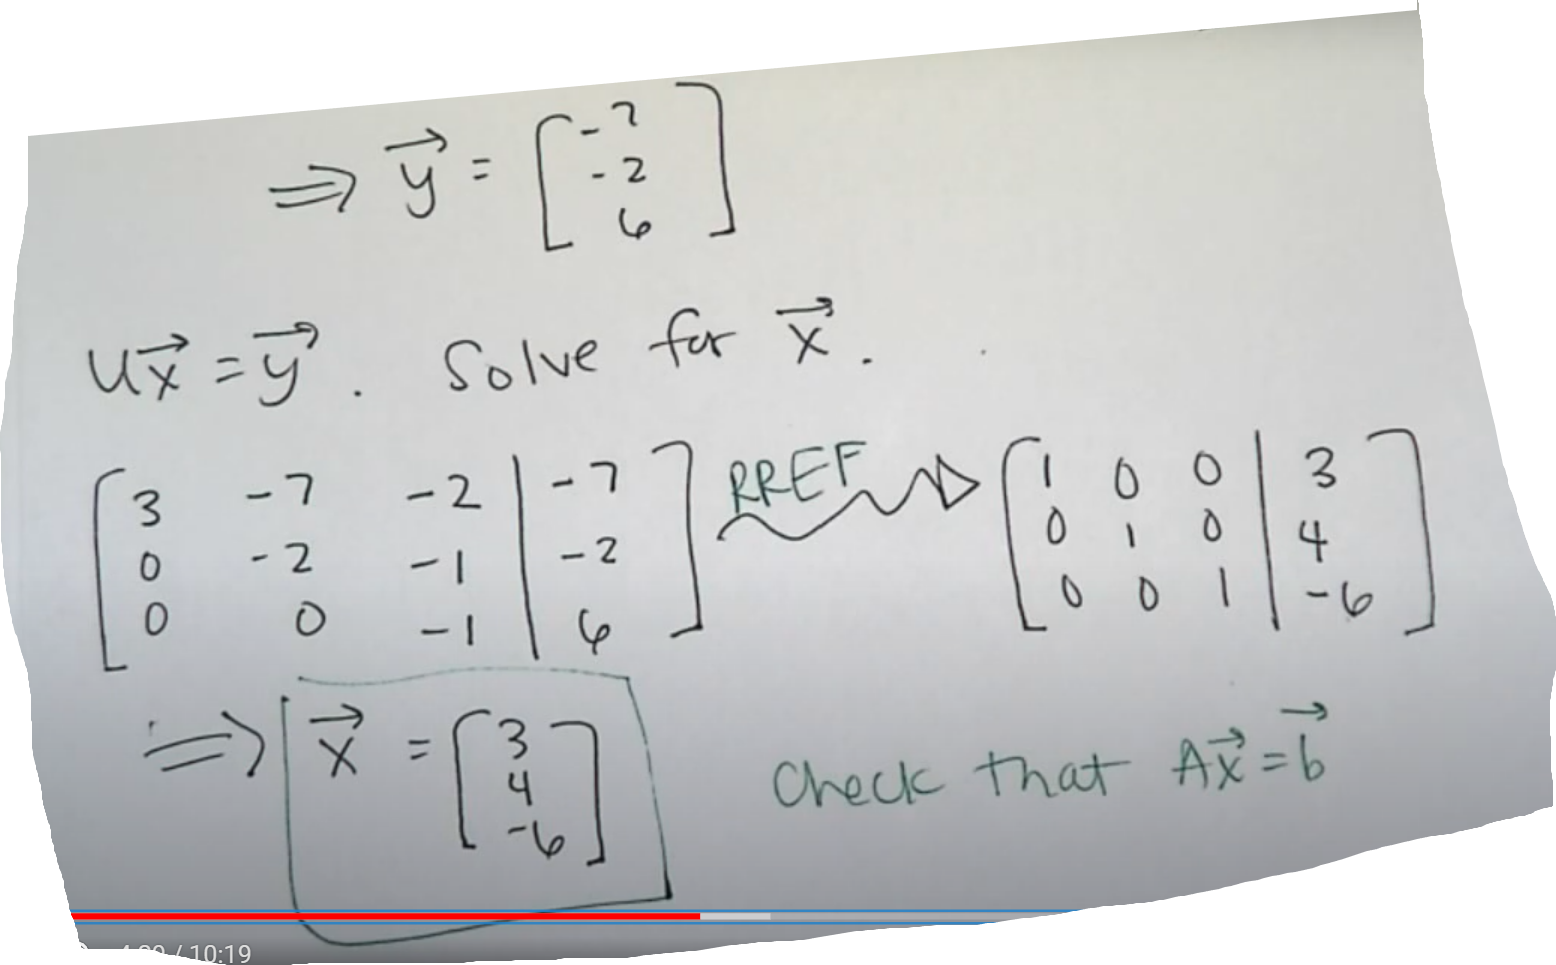 ⇒ y⃗ = [-7
-2
6]
Ux⃗ = y⃗ . Solve for x⃗ .
[3 -7 -2 | -7
0 -2 -1 | -2
0 0 -1 | 6]
RREF
[1 0 0 | 3
0 1 0 | 4
0 0 1 | -6]
⇒ x⃗ = [3
4
-6]
Check that Ax⃗ = b⃗
/ 10:19